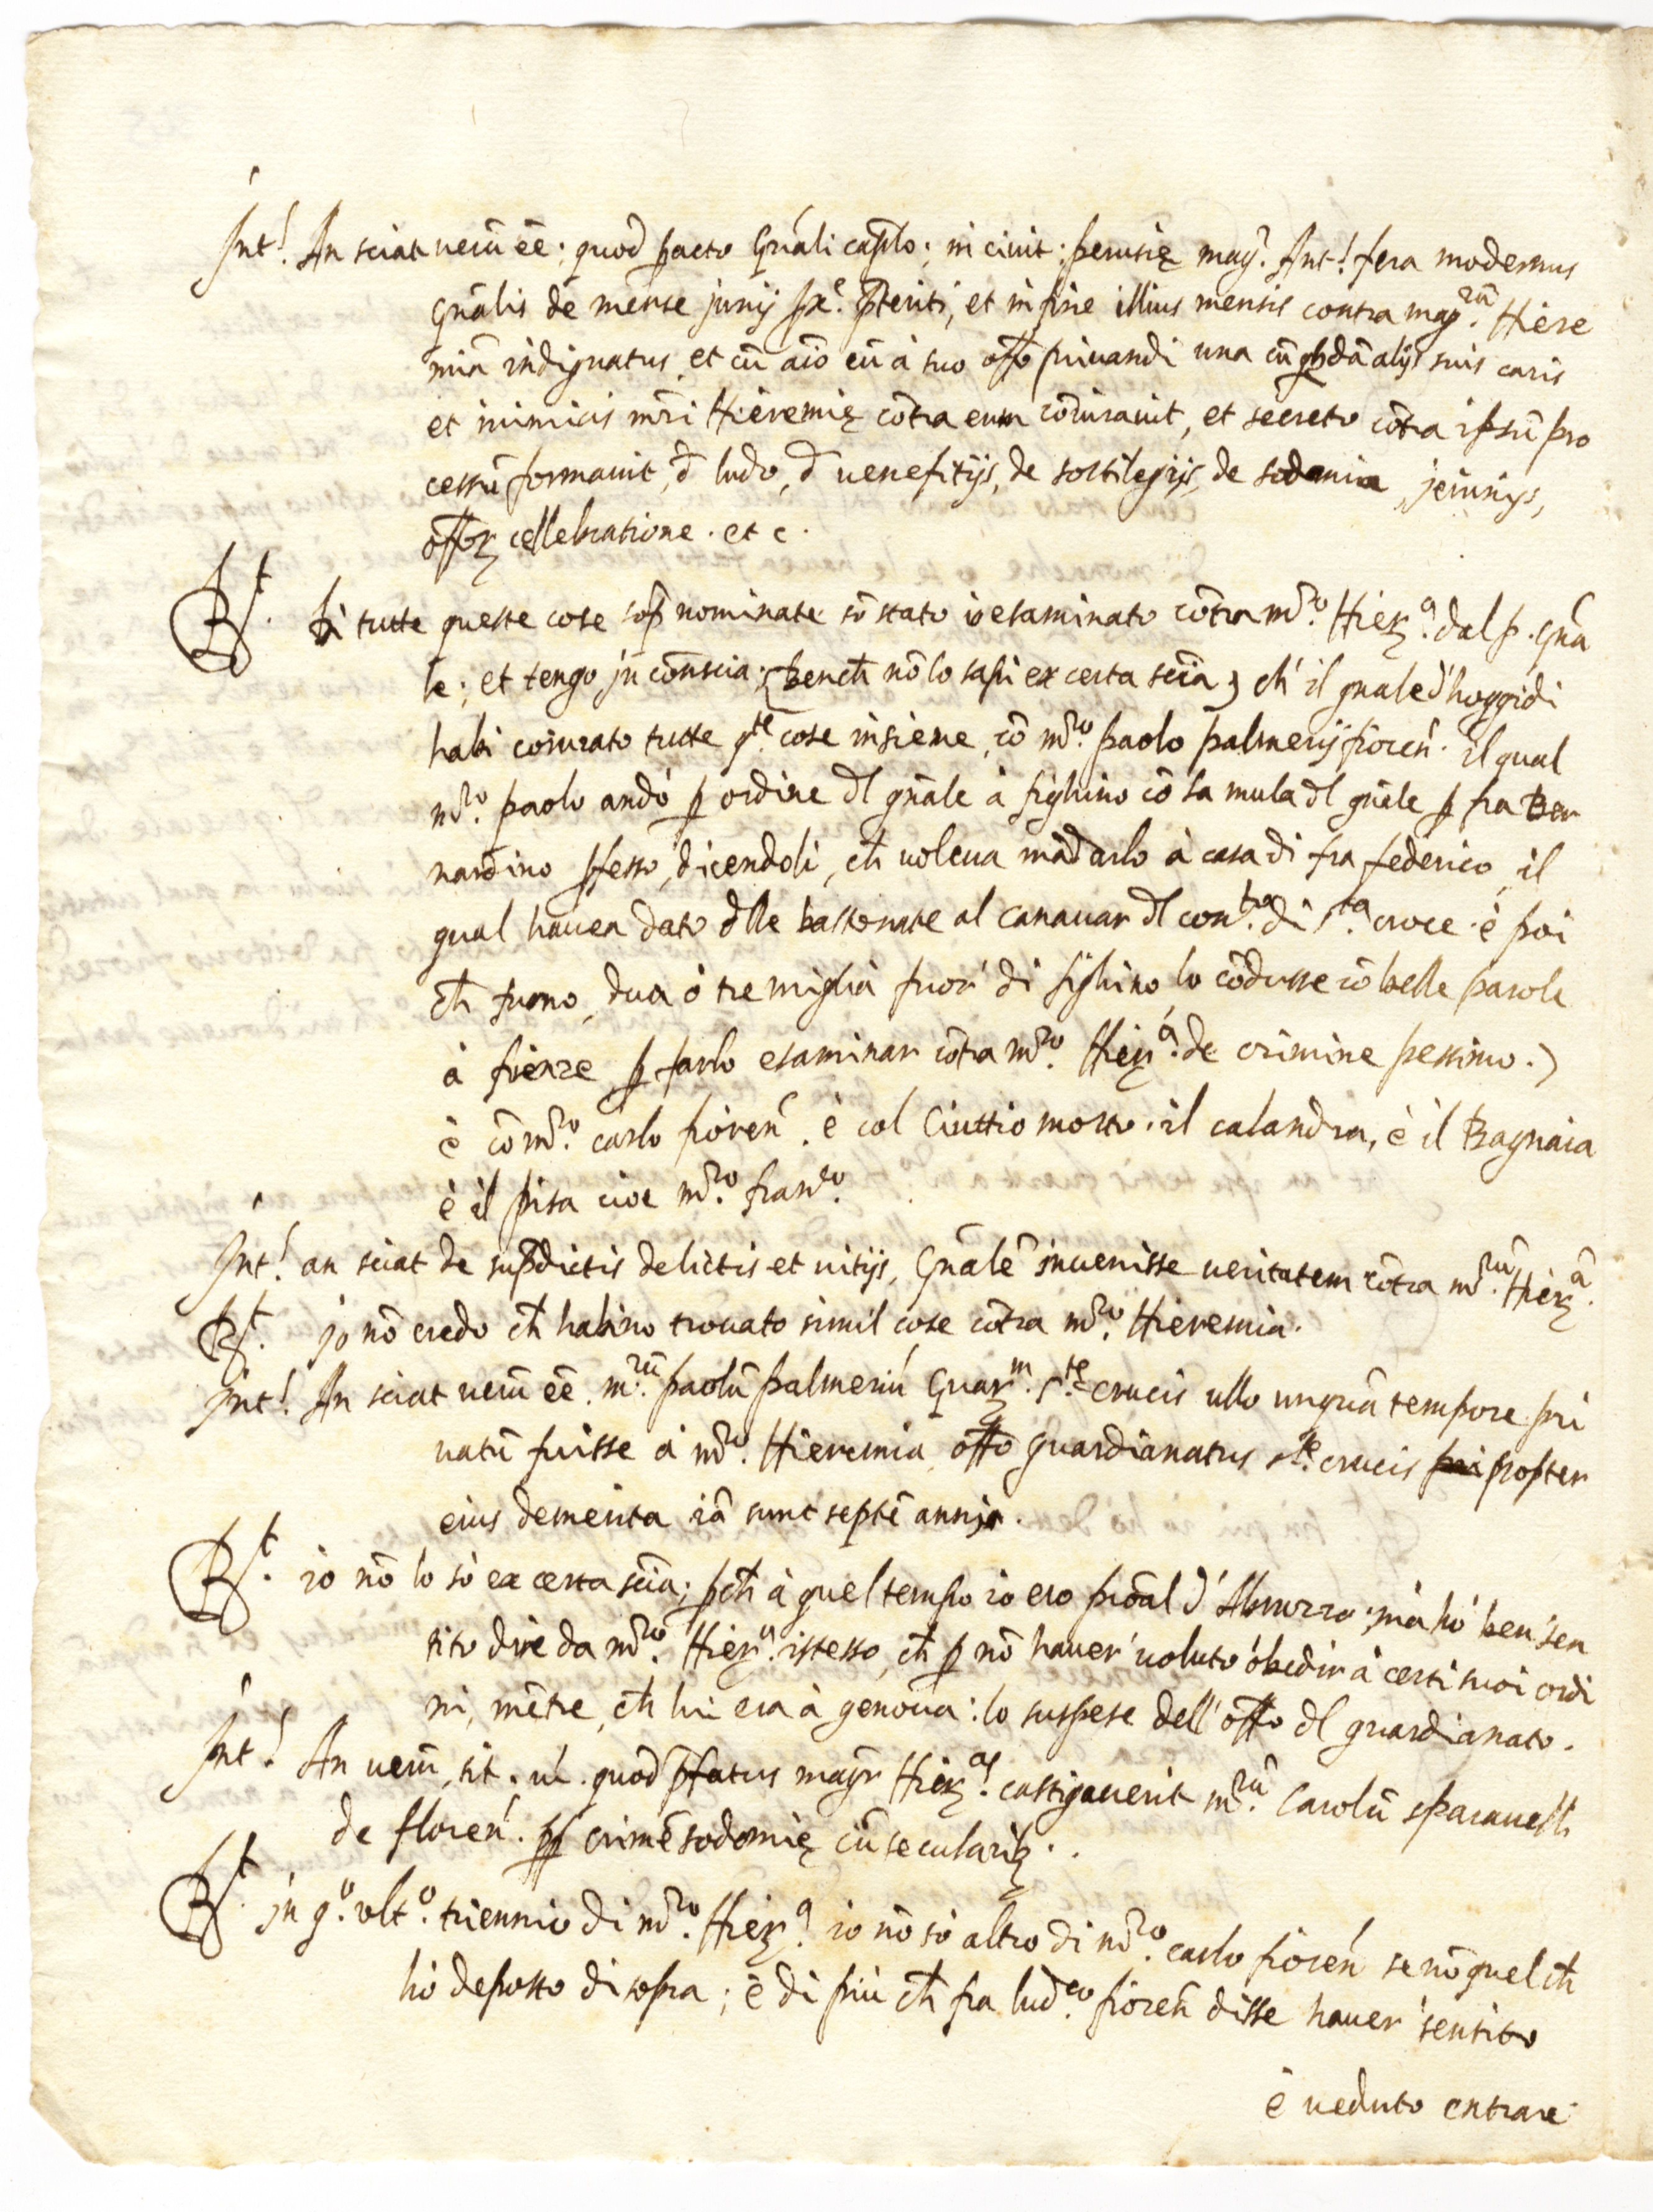 Int! An sciat verũ eẽ: quod facto Gñali caplo: in civit: perusię mag̃r. Ant! fera modernus
Gñalis de mense junij px̃e. pteriti, et in fine illius mensis contra mag.rũ Hiere
miã indignatus, et cũ aĩo eũ à suo offo privandi una cũ qbdã alijs suis caris
et inimicis mri Hieremię cõtra eum cõiuravit, et secreto cõtra ipsũ pro
cessũ formavit, d̃ ludo, d̃ venefitijs, de sortilegijs, de sodomia, jeiunijs,
offoꝝ cellebratione. et c.
R.t Di tutte queste cose sop̃ nominate sõ stato io esaminato cõtra m.ro Hierꝝ.a dal p. gñа
le; et tengo jn cõnscia; (bench̃ nõ lo sapi ex certa sciã) ch' il gnale d'hoggidi
habi coiurato tutte q.te cose insieme, cõ m.ro paolo palmerij fioreñ. il qual
m.ro paolo andò ꝑ ordine dl gñale à fighino cõ la mula dl gñele ꝑ fra Ber
nardino sfesso, dicendoli, ch̃ voleva mãdarlo à casa di fra federico, il
qual havea dato dlle bastonate al canavar dl con.to di s.ta croce. è poi
ch̃ furno, dua ò tre miglia fuor' di fighino, lo cõdusse cõ belle parole
à fiẽnze ꝑ farlo esaminar cõtra m.ro Hierꝝ.a de crimine pessimo.)
è cõ m.ro carlo fioreñ. è col Ciuttio morto. il calandra, è il Bagnaia
è il pisa cioe m.ro fran.co
Int! an sciat de sup̃dictis delictis et vitijs, Gñalẽ invenisse veritatem cõtra m.rũ Hierꝝ.ã
R.t jo nõ credo ch̃ habino trovato simil cose cõtra m.ro Hieremia.
Int! An sciat verũ eẽ. m.rũ paolũ palmeriũ Guarꝝ.m s.tę crucis ullo unquã tempore pri
vatũ fuisse à m.ro Hieremia offo guardianatus s.te crucis pri propter
eius demerita iã sunt septẽ annis.
R.t io nõ lo sò ex certa sciã; ꝑch̃ à quel tempo io ero proãl d'Abruzzo; mà hò ben sen
tito dire da m.ro Hierꝝ.a istesso, ch̃ ꝑ nõ haver' voluto obedir à certi suoi ordi
ni, mẽtre, ch̃ lui era à genova: lo suspese dell' offo dl guardianato.
Int! An verũ sit. ul. quod pfatus mag̃r Hierꝝ.as castigaverit m.rũ Carolũ sparavelli
de floreñ. pp̃ crimẽ sodomię cũ secularibꝫ.
R.t jn q.o ult.o triennio di m.ro Hierꝝ.a io nõ sò altro di m.ro carlo fioreñ se nõ quel ch̃
hò deposto di sopra; è di più ch̃ fra lud.co fioreñ disse haver' sentito
è veduto entrare